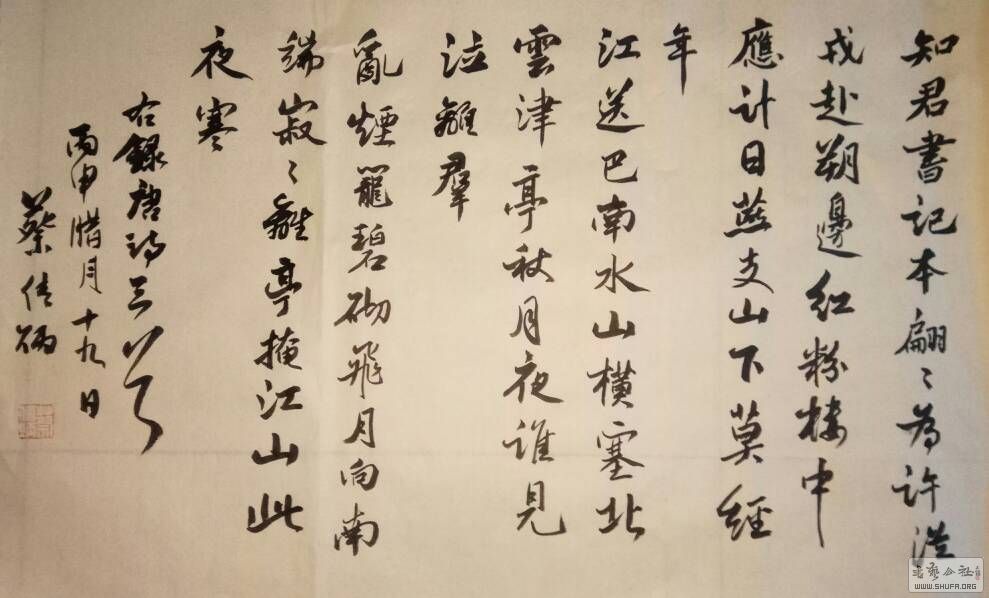 知君書記本翩〻為許從
戎赴朔邊紅粉樓中
應計日燕支山下莫經
年
江送巴南水山橫塞北
雲津亭秋月夜誰見
泣離羣
亂煙籠碧砌飛月向南
端寂〻離亭掩江山此
夜寒
右録唐詩三首
丙申腊月十九日
蔡
书艺公社
WWW.SHUFA.ORG